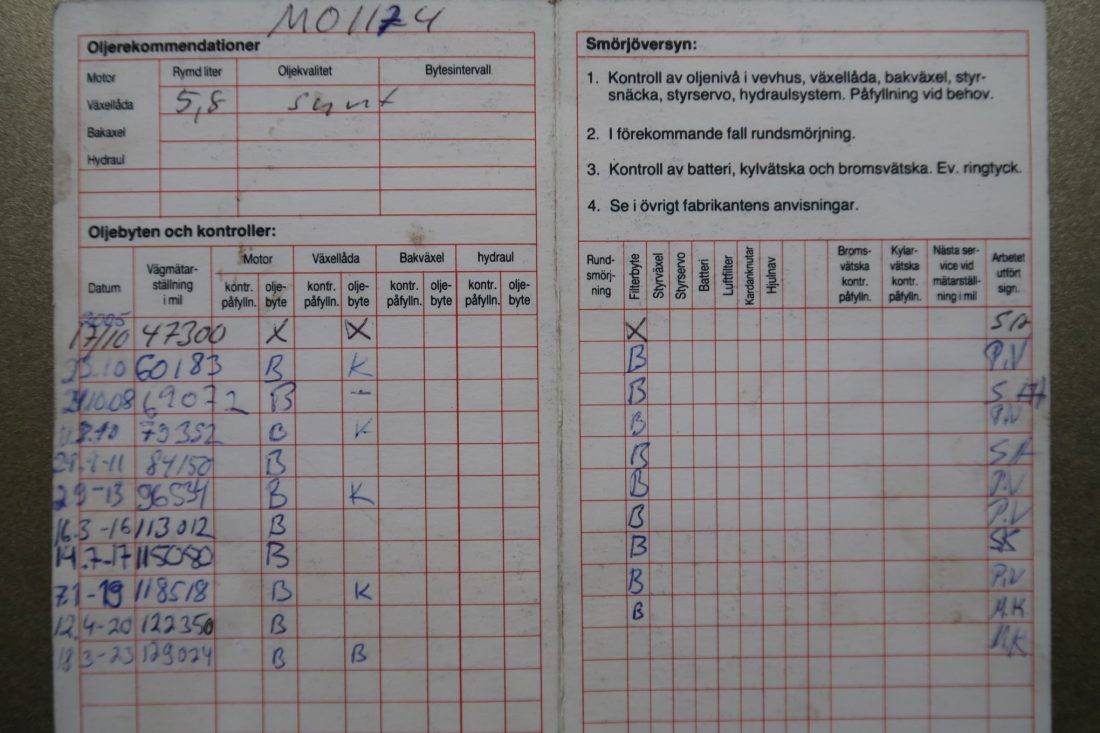 MO1174
Oljerekommendationer
Rymd liter Oljekvalitet Bytesintervall
Motor
Växellåda 5,8 synt
Bakaxel
Hydraul
Oljebyten och kontroller:
Motor Växellåda Bakväxel hydraul
Datum Vägmätar-
ställning
i mil
kontr. påfylln. olje-byte kontr. påfylln. olje-byte kontr. påfylln. olje-byte kontr. påfylln. olje-byte
2005
17/10 47300 X X
60183 B K
69072 B -
79352 B K
84150 B
2 9-13 96534 B K
16.3-16 113012 B
14.7-17 115080 B
7.1-19 118518 B K
12.4-20 122350 B
18 3-23 129024 B B
Smörjöversyn:
1. Kontroll av oljenivå i vevhus, växellåda, bakväxel, styr-
snäcka, styrservo, hydraulsystem. Påfyllning vid behov.
2. I förekommande fall rundsmörjning.
3. Kontroll av batteri, kylvätska och bromsvätska. Ev. ringtyck.
4. Se i övrigt fabrikantens anvisningar.
Rund-
smörj-
ning
Filterbyte
Styrväxel
Styrservo
Batteri
Luftfilter
Kardanknutar
Hjulnav
Broms-
vätska
kontr.
påfylln.
Kylar-
vätska
kontr.
påfylln.
Nästa ser-
vice vid
mätarställ-
ning i mil
Arbetet
utfört
sign.
X SA
B P.V
B
B P.V
B SA
B P.V
B P.V
B
B P.V
B M.K
M.K